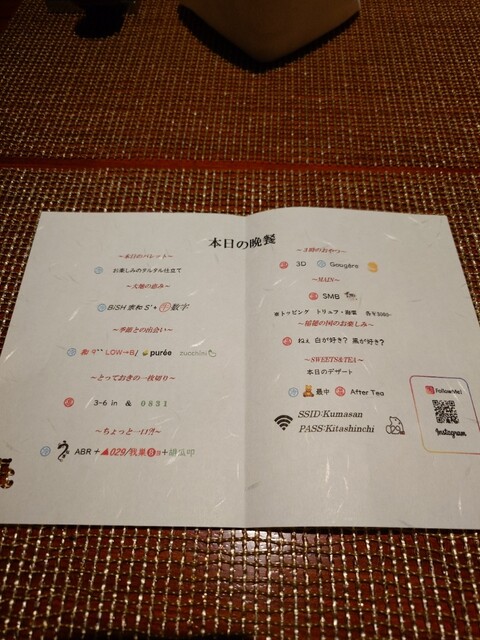 本日の晩餐
〜本日のパレット〜
冷 お楽しみのタルタル仕立て
〜大地の恵み〜
冷 BiSH 昆和 S'+ 数字
〜季節との出会い〜
LOW→B/ purée zucchini
〜とっておきの一枚切り〜
温 3-6 in & 0831
〜ちょっと一口⁈〜
冷 ABR + ▲029/
〜3時のおやつ〜
温 3D 冷 Gougère
〜MAIN〜
温 SMB
※トッピング トリュフ・御雲
〜瑞穂の国のお楽しみ〜
温 ねぇ 白が好き? 黒が好き?
〜SWEETS&TEA〜
本日のデザート
冷 最中 温 After Tea
SSID:Kumasan
PASS:Kitashinchi
Follow Me!
Instagram